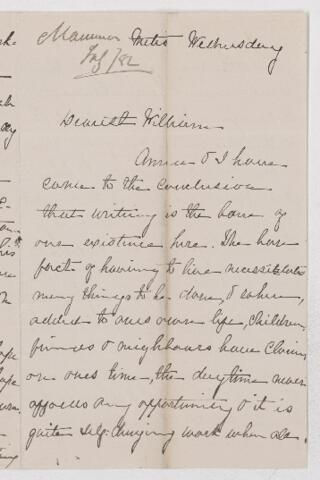 Wednesday
July /82
Dearest William
Anna & I have
come to the conclusion
that writing is the bane of
our existence here. The bare
fact of having to live necessitates
many things to be done, & when,
added to ones own life, children,
& neighbours have claims
on ones time, the daytime never
affords any opportunity & it is
quite self-denying work when all